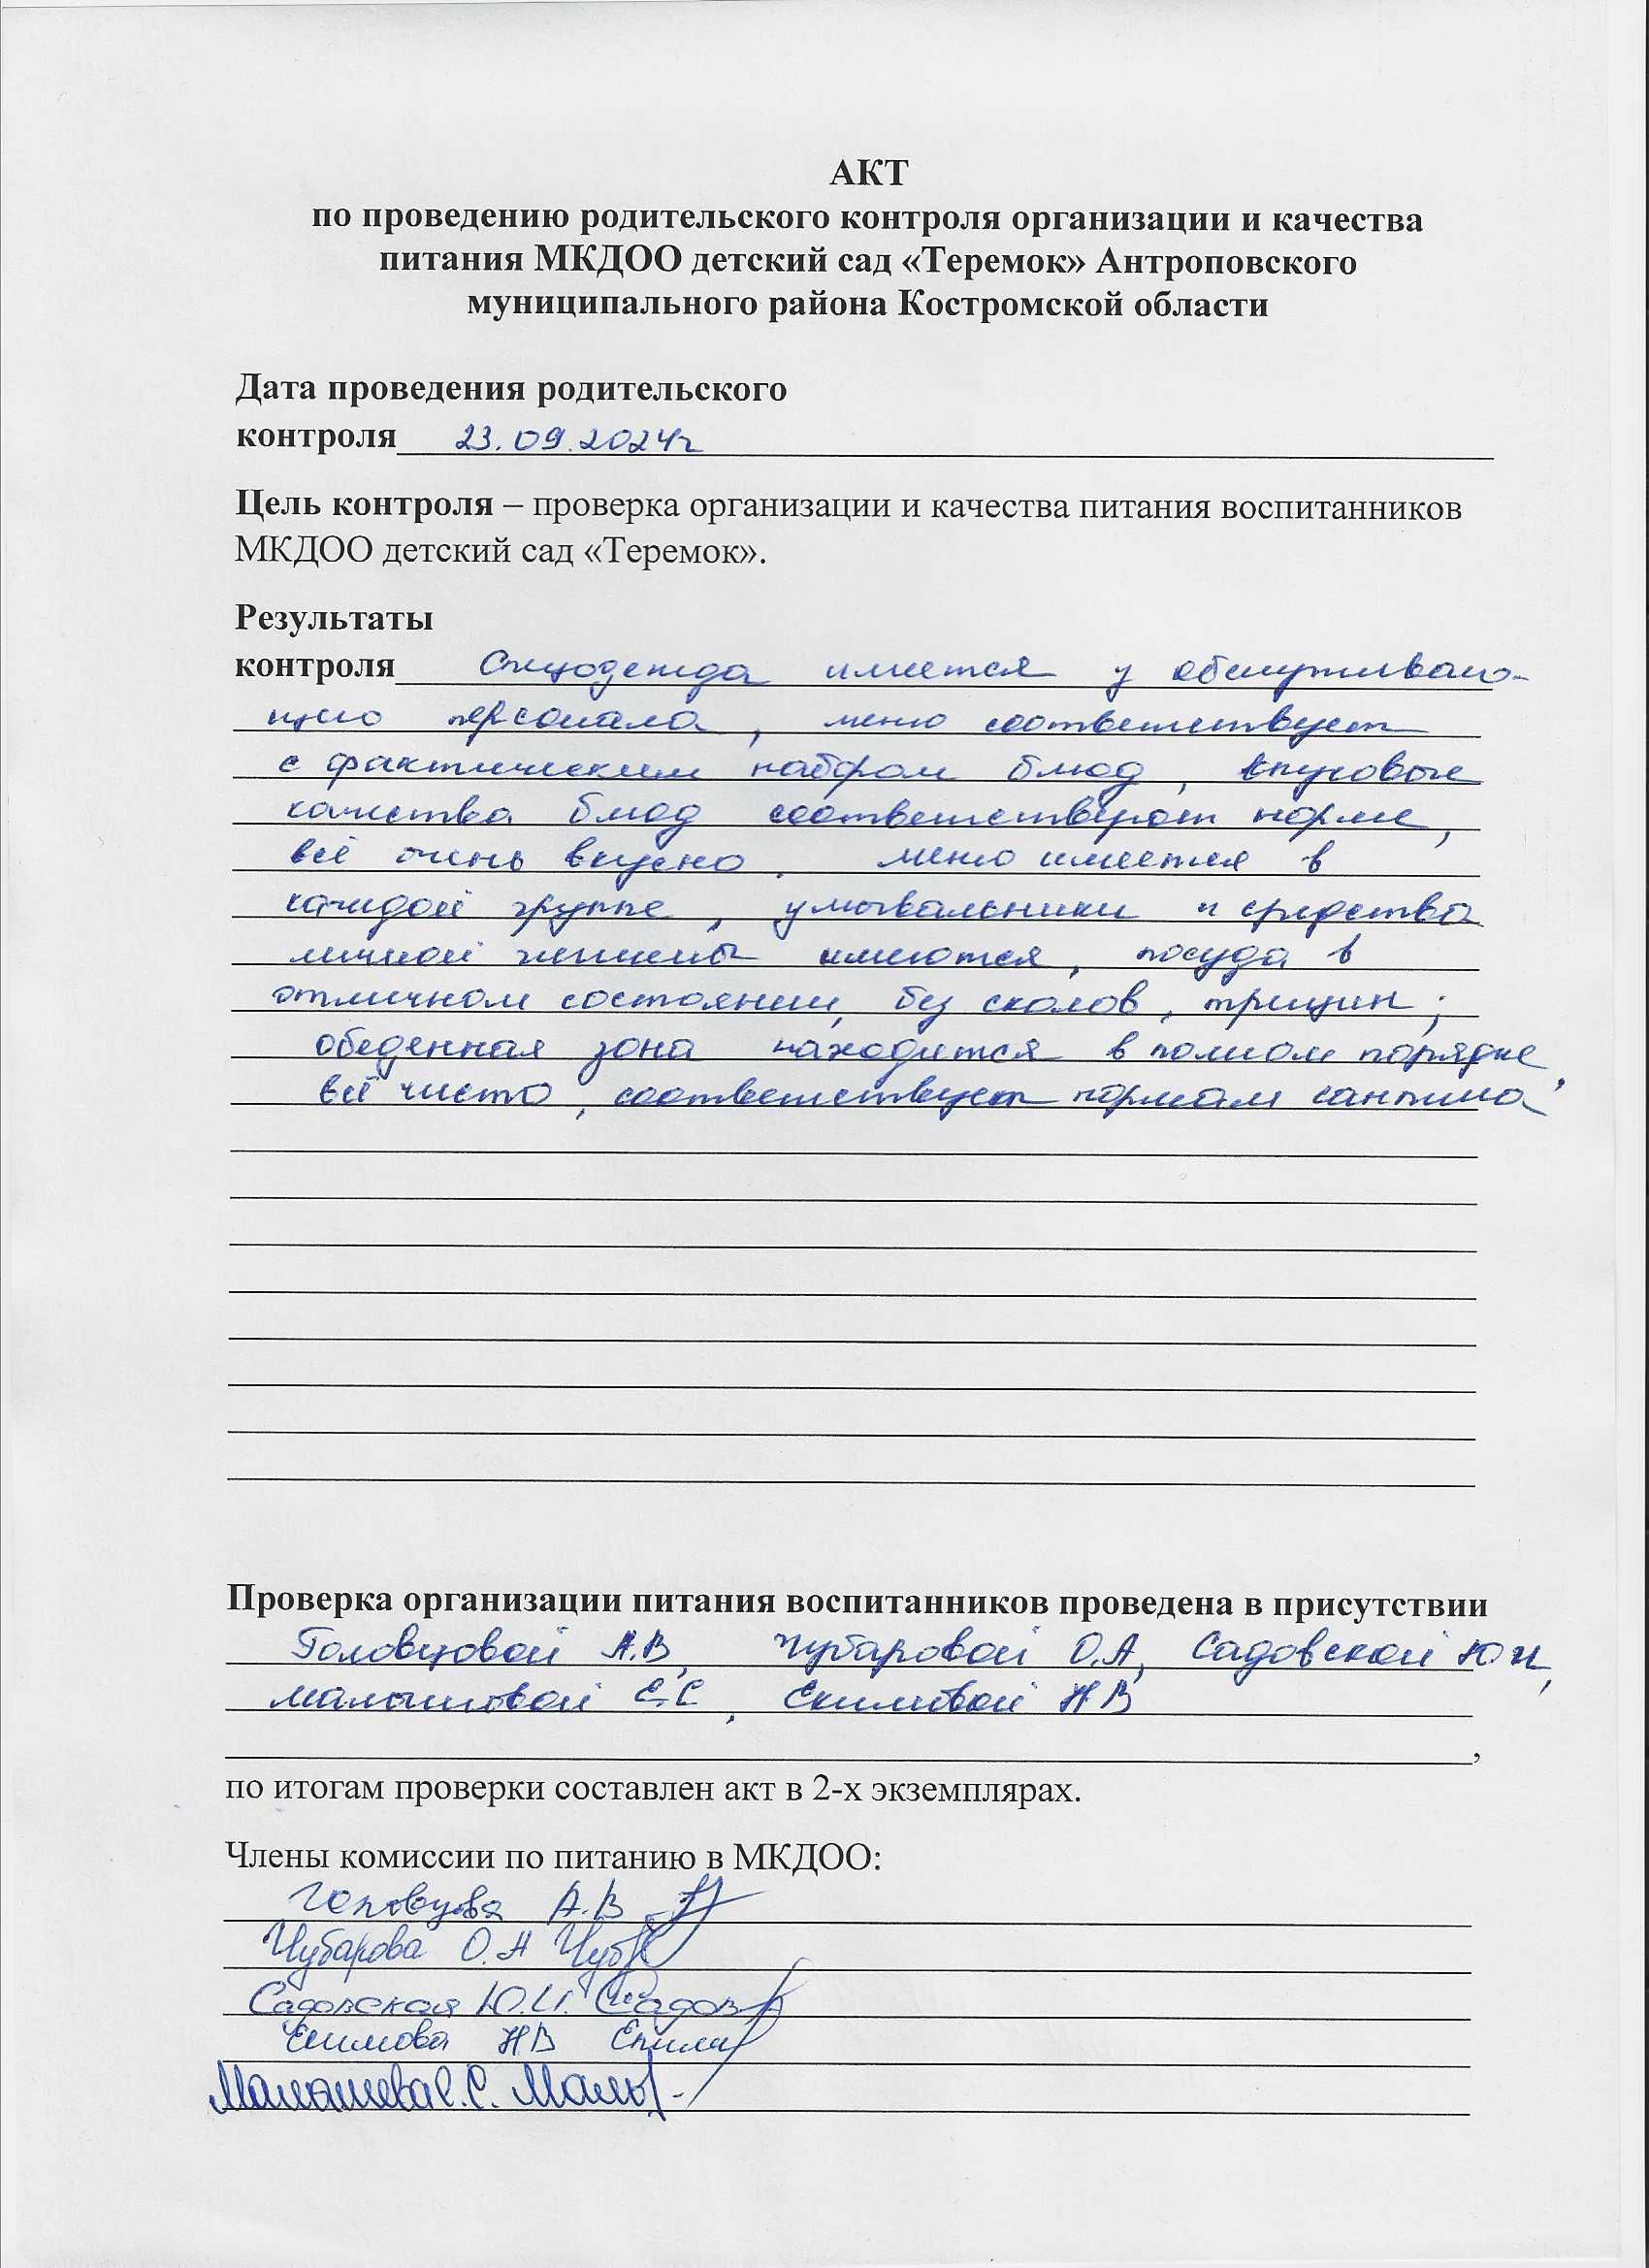 АКТ
по проведению родительского контроля организации и качества
питания МКДОО детский сад «Теремок» Антроповского
муниципального района Костромской области
Дата проведения родительского
контроля 23.09.2024г
Цель контроля – проверка организации и качества питания воспитанников
МКДОО детский сад «Теремок».
Результаты
контроля Спецодежда имеется у обслуживаю-
щего персонала, меню соответствует
с фактическим набором блюд, вкусовые
качества блюд соответствуют норме,
всё очень вкусно. меню имеется в
каждой группе, умывальники и средства
личной гигиены имеются, посуда в
отличном состоянии, без сколов, трещин;
обеденная зона находится в полном порядке,
всё чисто, соответствует нормам
Проверка организации питания воспитанников проведена в присутствии
Головцовой А.В, Чубаровой О.А, Садовской Ю И,
Малышевой Е.С, Екимовой Н В
,
по итогам проверки составлен акт в 2-х экземплярах.
Члены комиссии по питанию в МКДОО:
Головцова А.В
Чубарова О.А
Садовская Ю.И.
Екимова Н В
Малышева Е.С.